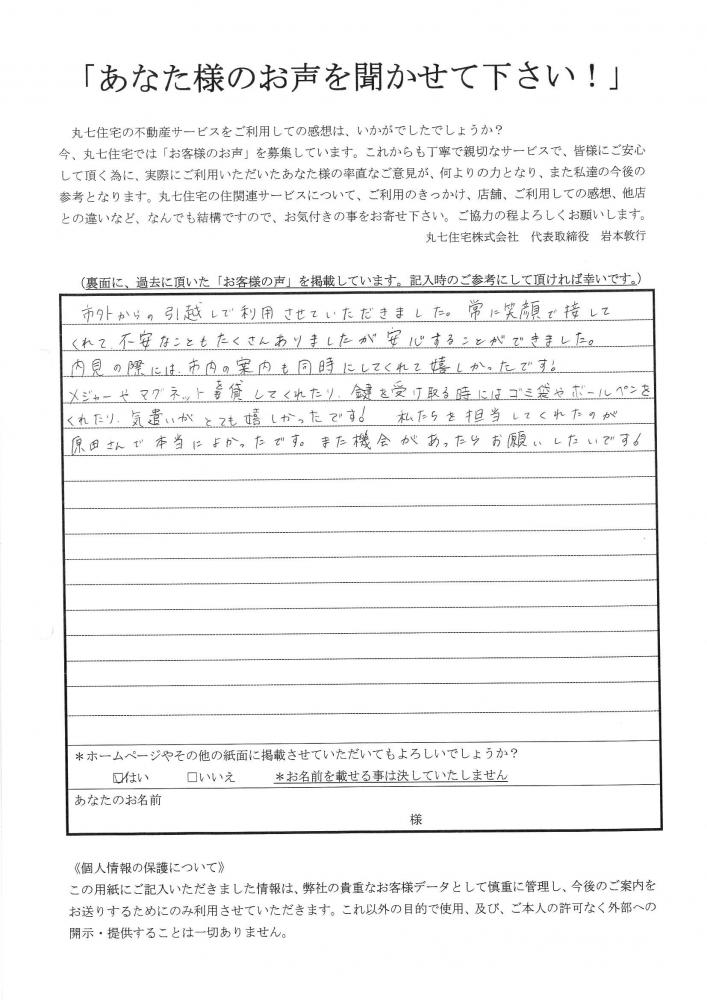 「あなた様のお声を聞かせて下さい！」
丸七住宅の不動産サービスをご利用しての感想は、いかがでしたでしょうか？
今、丸七住宅では「お客様のお声」を募集しています。これからも丁寧で親切なサービスで、皆様にご安心
して頂く為に、実際にご利用いただいたあなた様の率直なご意見が、何よりの力となり、また私達の今後の
参考となります。丸七住宅の住関連サービスについて、ご利用のきっかけ、店舗、ご利用しての感想、他店
との違いなど、なんでも結構ですので、お気付きの事をお寄せ下さい。ご協力の程よろしくお願いします。
丸七住宅株式会社　代表取締役　岩本敦行
（裏面に、過去に頂いた「お客様の声」を掲載しています。記入時のご参考にして頂ければ幸いです。）
市外からの引越しで利用させていただきました。常に笑顔で接して
くれて、不安なこともたくさんありましたが安心することができました。
内見の際には、市内の案内も同時にしてくれて嬉しかったです!
メジャーやマグネット貸してくれたり、鍵を受け取る時にはゴミ袋やボールペンを
くれたり、気遣いがとても嬉しかったです!　私たちを担当してくれたのが
原田さんで本当によかったです。また機会があったらお願いしたいです!
＊ホームページやその他の紙面に掲載させていただいてもよろしいでしょうか？
☑はい　□いいえ　＊お名前を載せる事は決していたしません
あなたのお名前
様
《個人情報の保護について》
この用紙にご記入いただきました情報は、弊社の貴重なお客様データとして慎重に管理し、今後のご案内を
お送りするためにのみ利用させていただきます。これ以外の目的で使用、及び、ご本人の許可なく外部への
開示・提供することは一切ありません。